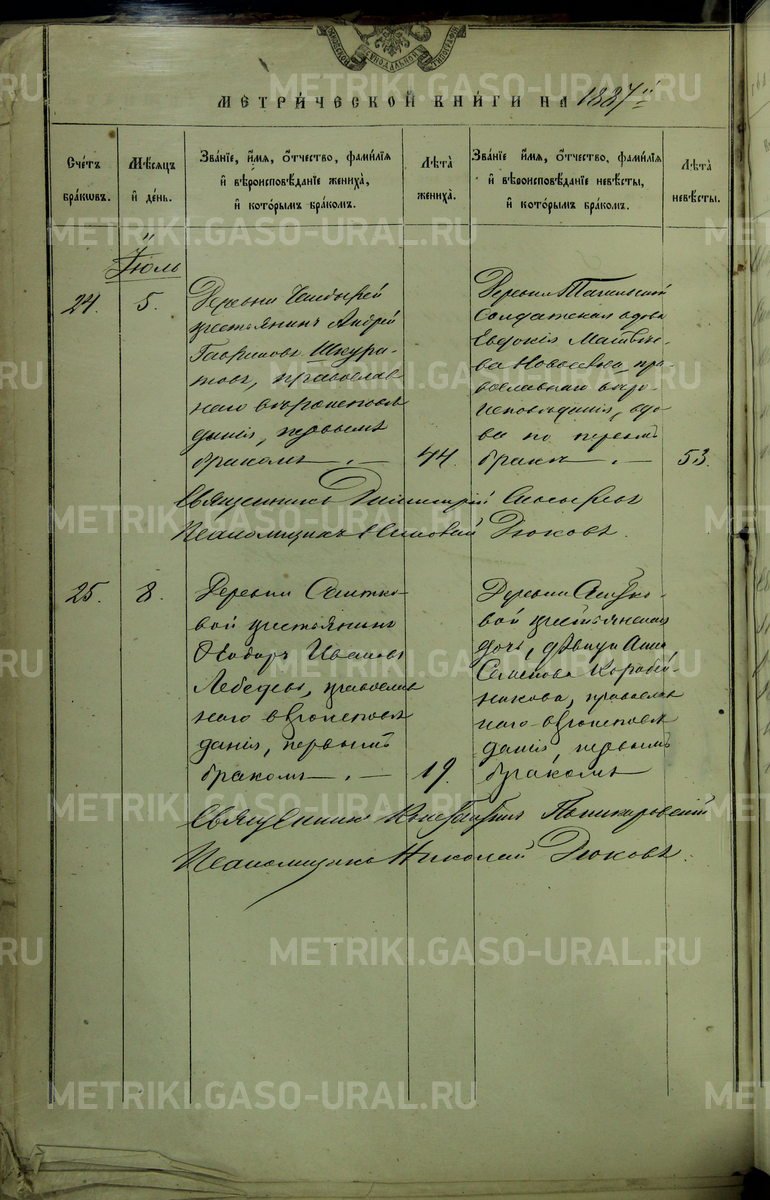 МЕТРИЧЕСКОЙ КНИГИ НА 1887й
Счетъ браковъ.
Мѣсяцъ и день.
Званіе, имя, отчество, фамилія и вѣроисповѣданіе жениха, и которымъ бракомъ.
Лѣта жениха.
Званіе, имя, отчество, фамилія и вѣроисповѣданіе невѣсты, и которымъ бракомъ.
Лѣта невѣсты.
Іюль
24.
5.
Деревни
крестьянинъ Андрей
Гавриловъ Шкура-
товъ, православ
наго вѣроисповѣ
данія, первымъ
бракомъ
44.
Деревни
Солдатская вдова
Евдокія Матвѣе-
ва пра-
вославнаго вѣро-
исповѣданія, вдо
ва по первомъ
бракѣ
53.
Священникъ Димитрій
Псаломщикъ Дюковъ.
25.
8.
Деревни
вой крестьянинъ
Ѳеодоръ Ивановъ
Лебедевъ, православ
наго вѣроисповѣ
данія, первымъ
бракомъ
19.
Деревни
вой крестьянская
дочь, дѣвица Анна
Семенова Коробей-
никова, православ
наго вѣроисповѣ
данія, первымъ
бракомъ
Священникъ Константинъ
Псаломщикъ Николай Дюковъ.
METRIKI.GASO-URAL.RU